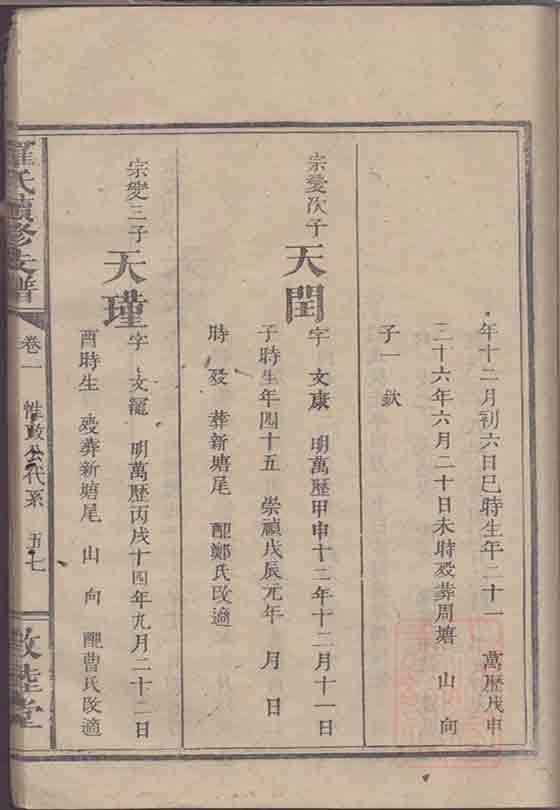 年十二月初六日巳時生年二十一 萬歷戊申
三十六年六月二十日未時歿葬周塘 山 向
子一 欽
宗愛次子
天閏
字 文康 明萬歷甲申十二年十二月十一日
子時生年四十五 崇禎戊辰元年 月 日
時 歿 葬新塘尾 配鄭氏改適
宗愛三子
天瑾
字 文寵 明萬歷丙戌十四年九月二十二日
酉時生 歿葬新塘尾 山 向 配曹氏改適
羅氏續修支譜
卷一
惟政公代系 五七
敦睦堂